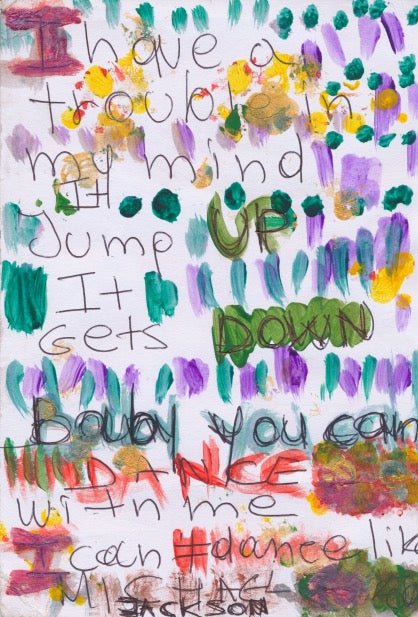 I have a
trouble in
my mind
It
Jump UP
It
Gets DOWN
Bouby you can
DANCE
with me
I can #dance lik
MICHAEL
JACKSON